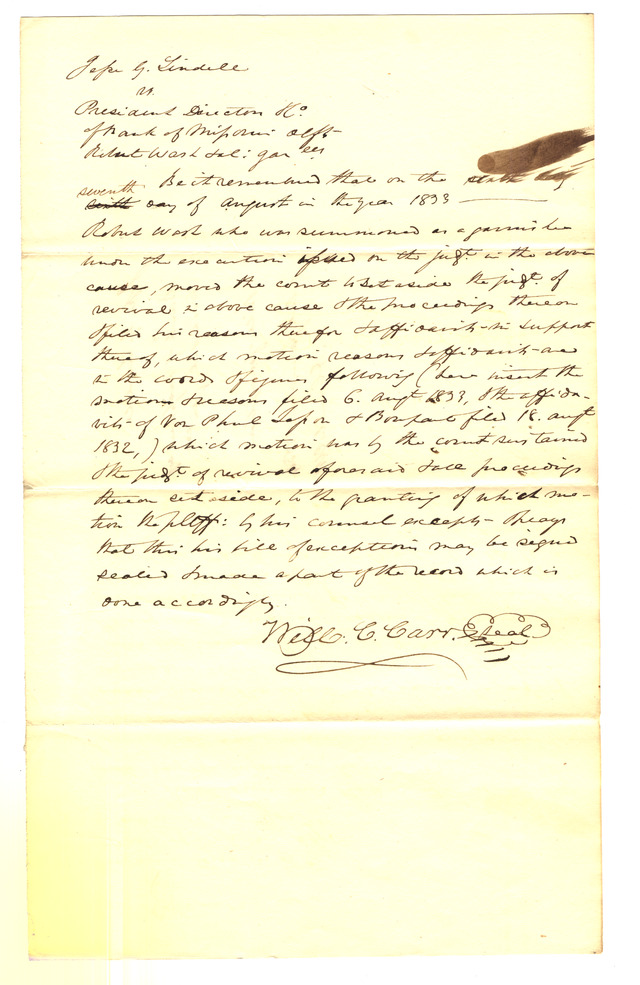 Jesse G. Lindell
vs
President Directors &Co
of Bank of Missouri defts
Robert Wash &al: garees
Be it remembered that on the sixth day
seventh
sixth day of august in the year 1833
Robert Wash who was summoned as a garnishee
under the execution issued on the judgt in the above
cause, moved the court to set aside the judgt. of
revival in above cause & the proceedings thereon
& filed his reasons therefor & affidavits in support
thereof, which motion reasons & affidavits are
in the words & figures following (here insert the
motion & reasons filed 6. augt 1833, & the affida-
vits of Von Phul & Bompart filed 18. augt
1832,) which motion was by the court sustained
& the judgt. of revival aforesaid & all proceedings
thereon set aside, to the granting of which mo-
tion the pltff: by his counsel excepts & prays
that this his bill of exceptions may be signed
sealed & made a part of the record which is
done accordingly.
Will. C. Carr. Seal